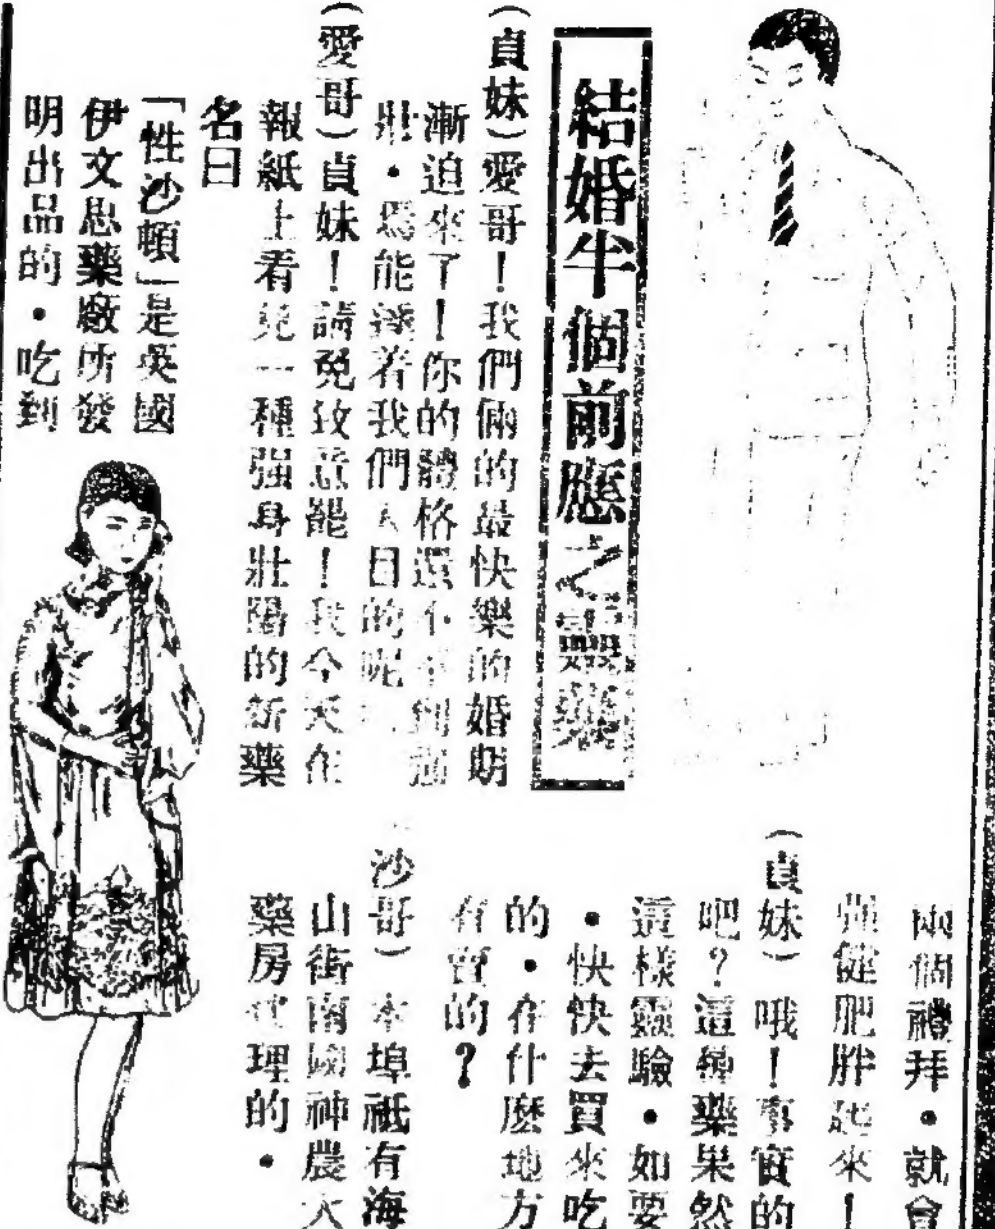 結婚半個前應之靈藥
(貞妹)愛哥！我們倆的最快樂的婚期
漸迫來了！你的體格還不
壯・焉能 着我們 日的呢
(愛哥)貞妹！請免致意罷！我今天在
報紙上看見一種强身壯陽的新藥
名曰
「性沙頓」是英國
伊文思藥廠所發
明出品的・吃到
兩個禮拜・就會
強健肥胖起來！
(貞妹)哦！事實的
吧？這種藥果然
這樣靈驗・如要
・快快去買來吃
的・在什麼地方
有賣的？
沙哥)本埠祗有海
山街南國神農大
藥房 理的・